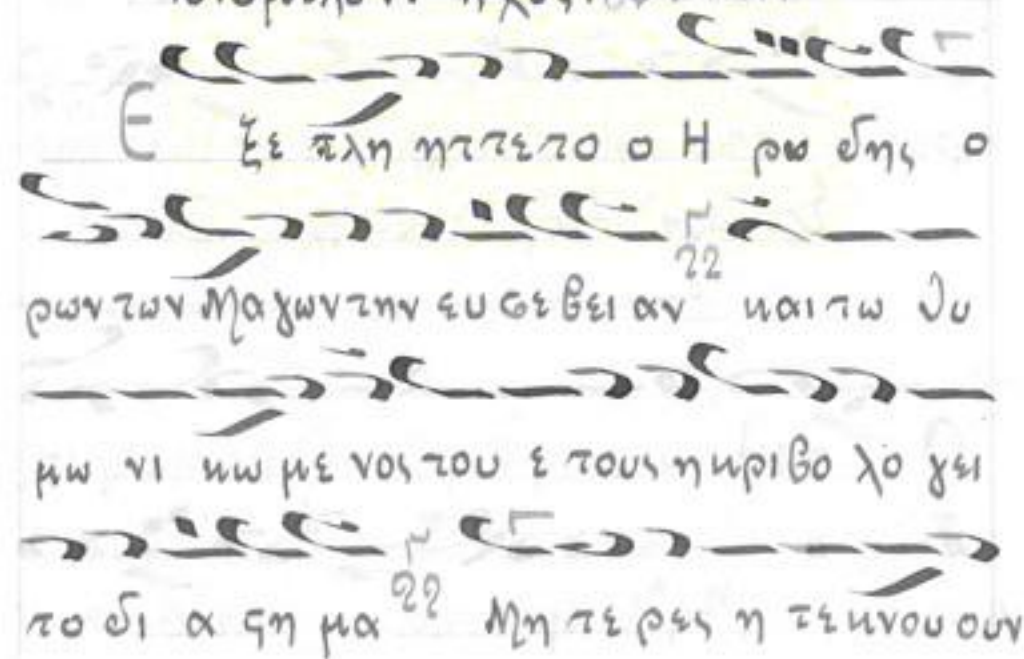 Ε ξε πλη ηττετο ο Η ρω δης ο
ρων των Μα γων την ευ σε βει αν και τω θυ
μω νι κω με νος του ε τους η κρι βο λο γει
το δι α ςη μα Μη τε ρες η τε κνου ουν